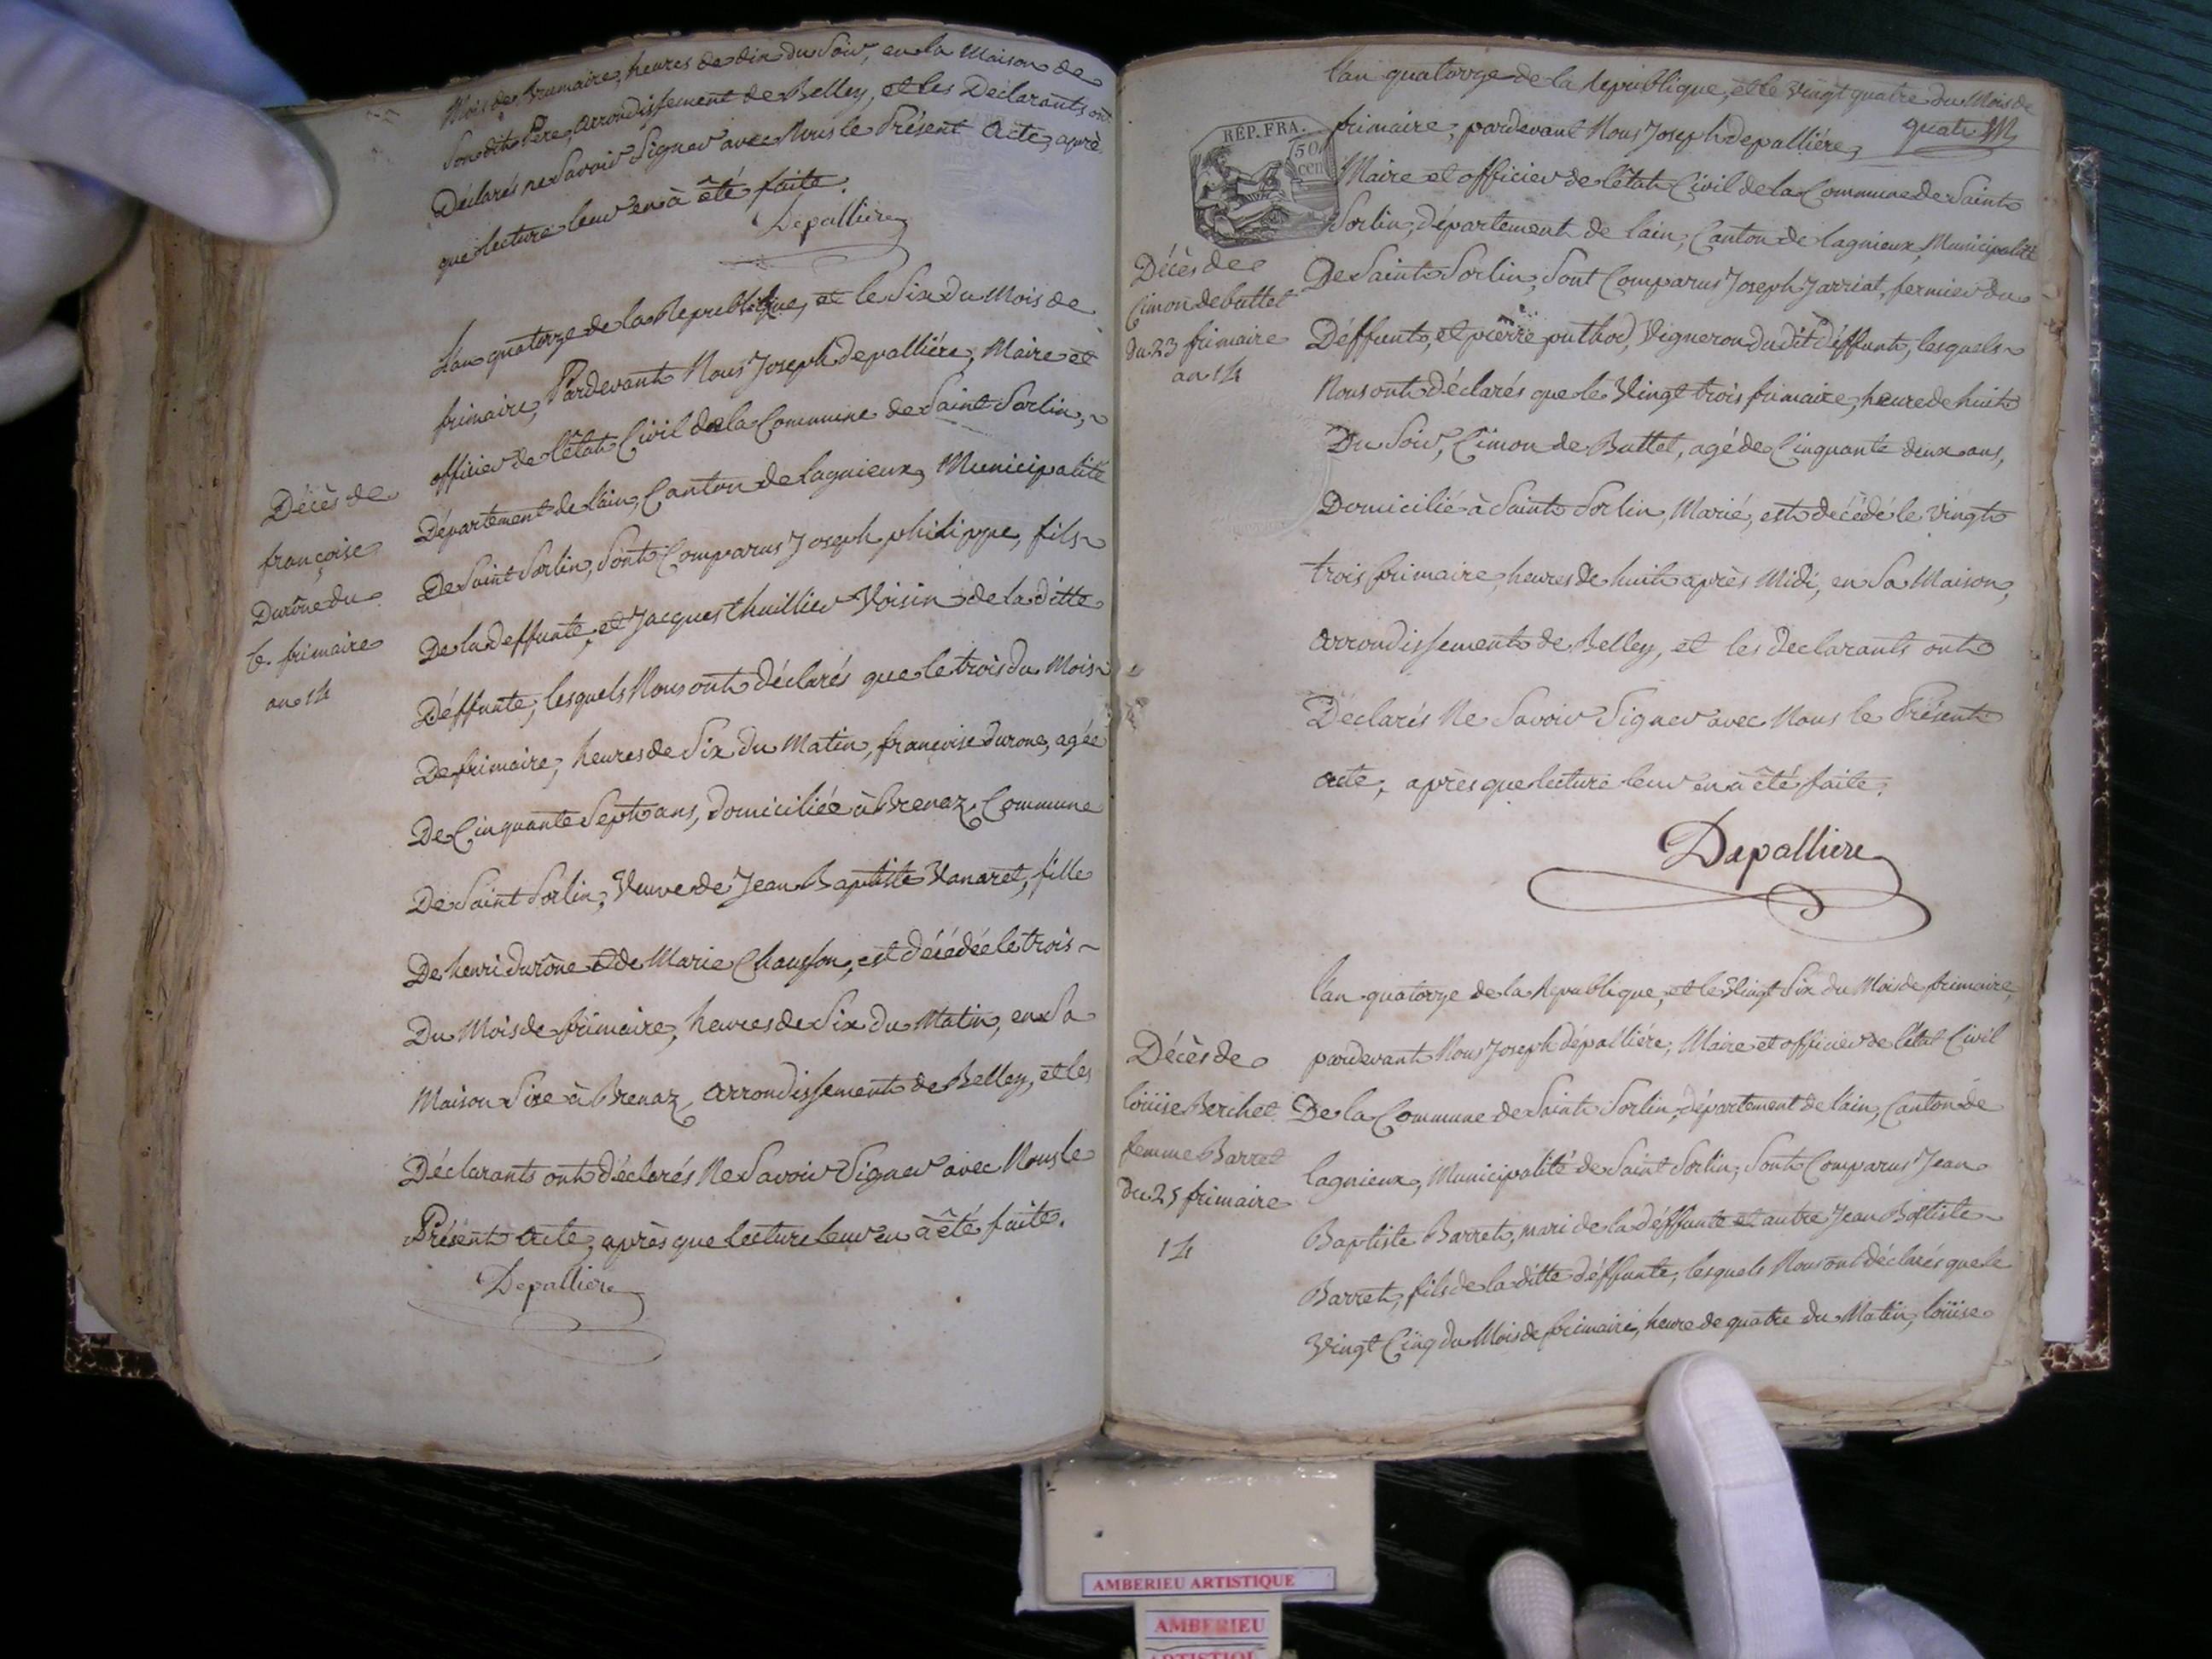 Mois de Brumaire, heures de dix du Soir, en la Maison de
Son dit Père, Arrondissement de Belley, et les Déclarants ont
Déclarés ne Savoir Signer avec Nous le Présent Acte, après
que lecture leur en à été faite.
Depalliere
L'an quatorze de la Republique, et le Six du Mois de
frimaire, Pardevant Nous Joseph depalliére, Maire et
officier de l'état Civil de la Commune de Saint Sorlin,
Département de l'ain, Canton de lagnieux, Municipalité
De Saint Sorlin, Sont Comparus Joseph philippe, fils
De la deffunte, et Jacques thuillier Voisin de la ditte
Déffunte, lesquels Nous ont déclarés que le trois du Mois
De frimaire, heures de Six du Matin, françoise durone, agée
De Cinquante Sept ans, domiciliée à Brenaz, Commune
De Saint Sorlin, Veuve de Jean Baptiste Vanaret, fille
De henri durône et de Marie Chausson, est décédée le trois
Du Mois de frimaire, heures de Six du Matin, en Sa
Maison Sixe à Brenaz, Arrondissement de Belley, et les
Déclarants ont déclarés Ne Savoir Signer avec Nous le
Présent Acte, après que lecture leur en à été faite.
Depalliere
Décès de
françoise
Durône du
6. frimaire
an 14
l'an quatorze de la Republique, et le Vingt quatre du Mois de
quatre
REP. FRA.
50
cen
frimaire, pardevant Nous Joseph depalliére,
Maire et officier de l'état Civil de la Commune de Saint
Sorlin, département de l'ain, Canton de lagnieux, Municipalité
De Saint Sorlin, Sont Comparus Joseph Jarriat, fermier du
Déffunt, et pierre puthod, Vigneron du dit déffunt, lesquels
Nous ont déclarés que le Vingt trois frimaire, heure de huit
Du Soir, Cimon de Buttet, agé de Cinquante deux ans,
Domicilié à Saint Sorlin, Marié, est décédé le Vingt
trois frimaire, heures de huit après Midi, en Sa Maison,
Arrondissement de Belley, et les declarants ont
Déclarés Ne Savoir Signer avec Nous le Présent
Acte, après que lecture leur en à été faite.
Depalliere
Décès de
Cimon debuttet
du 23 frimaire
an 14
l'an quatorze de la Republique, et le Vingt Six du Mois de frimaire,
pardevant Nous Joseph dépalliére, Maire et officier de l'état Civil
De la Commune de Saint Sorlin, département de l'ain, Canton de
lagnieux, Municipalité de Saint Sorlin, Sont Comparus Jean
Baptiste Barret, mari de la déffunte et autre Jean Baptiste
Barret, fils de la ditte déffunte, lesquels Nous ont déclarés que le
Vingt Cinq du Mois de frimaire, heure de quatre du Matin, loüise
Décès de
loüise Berchet
femme Barret
du 25 frimaire
14
AMBERIEU ARTISTIQUE
AMBERIEU
ARTISTIQUE